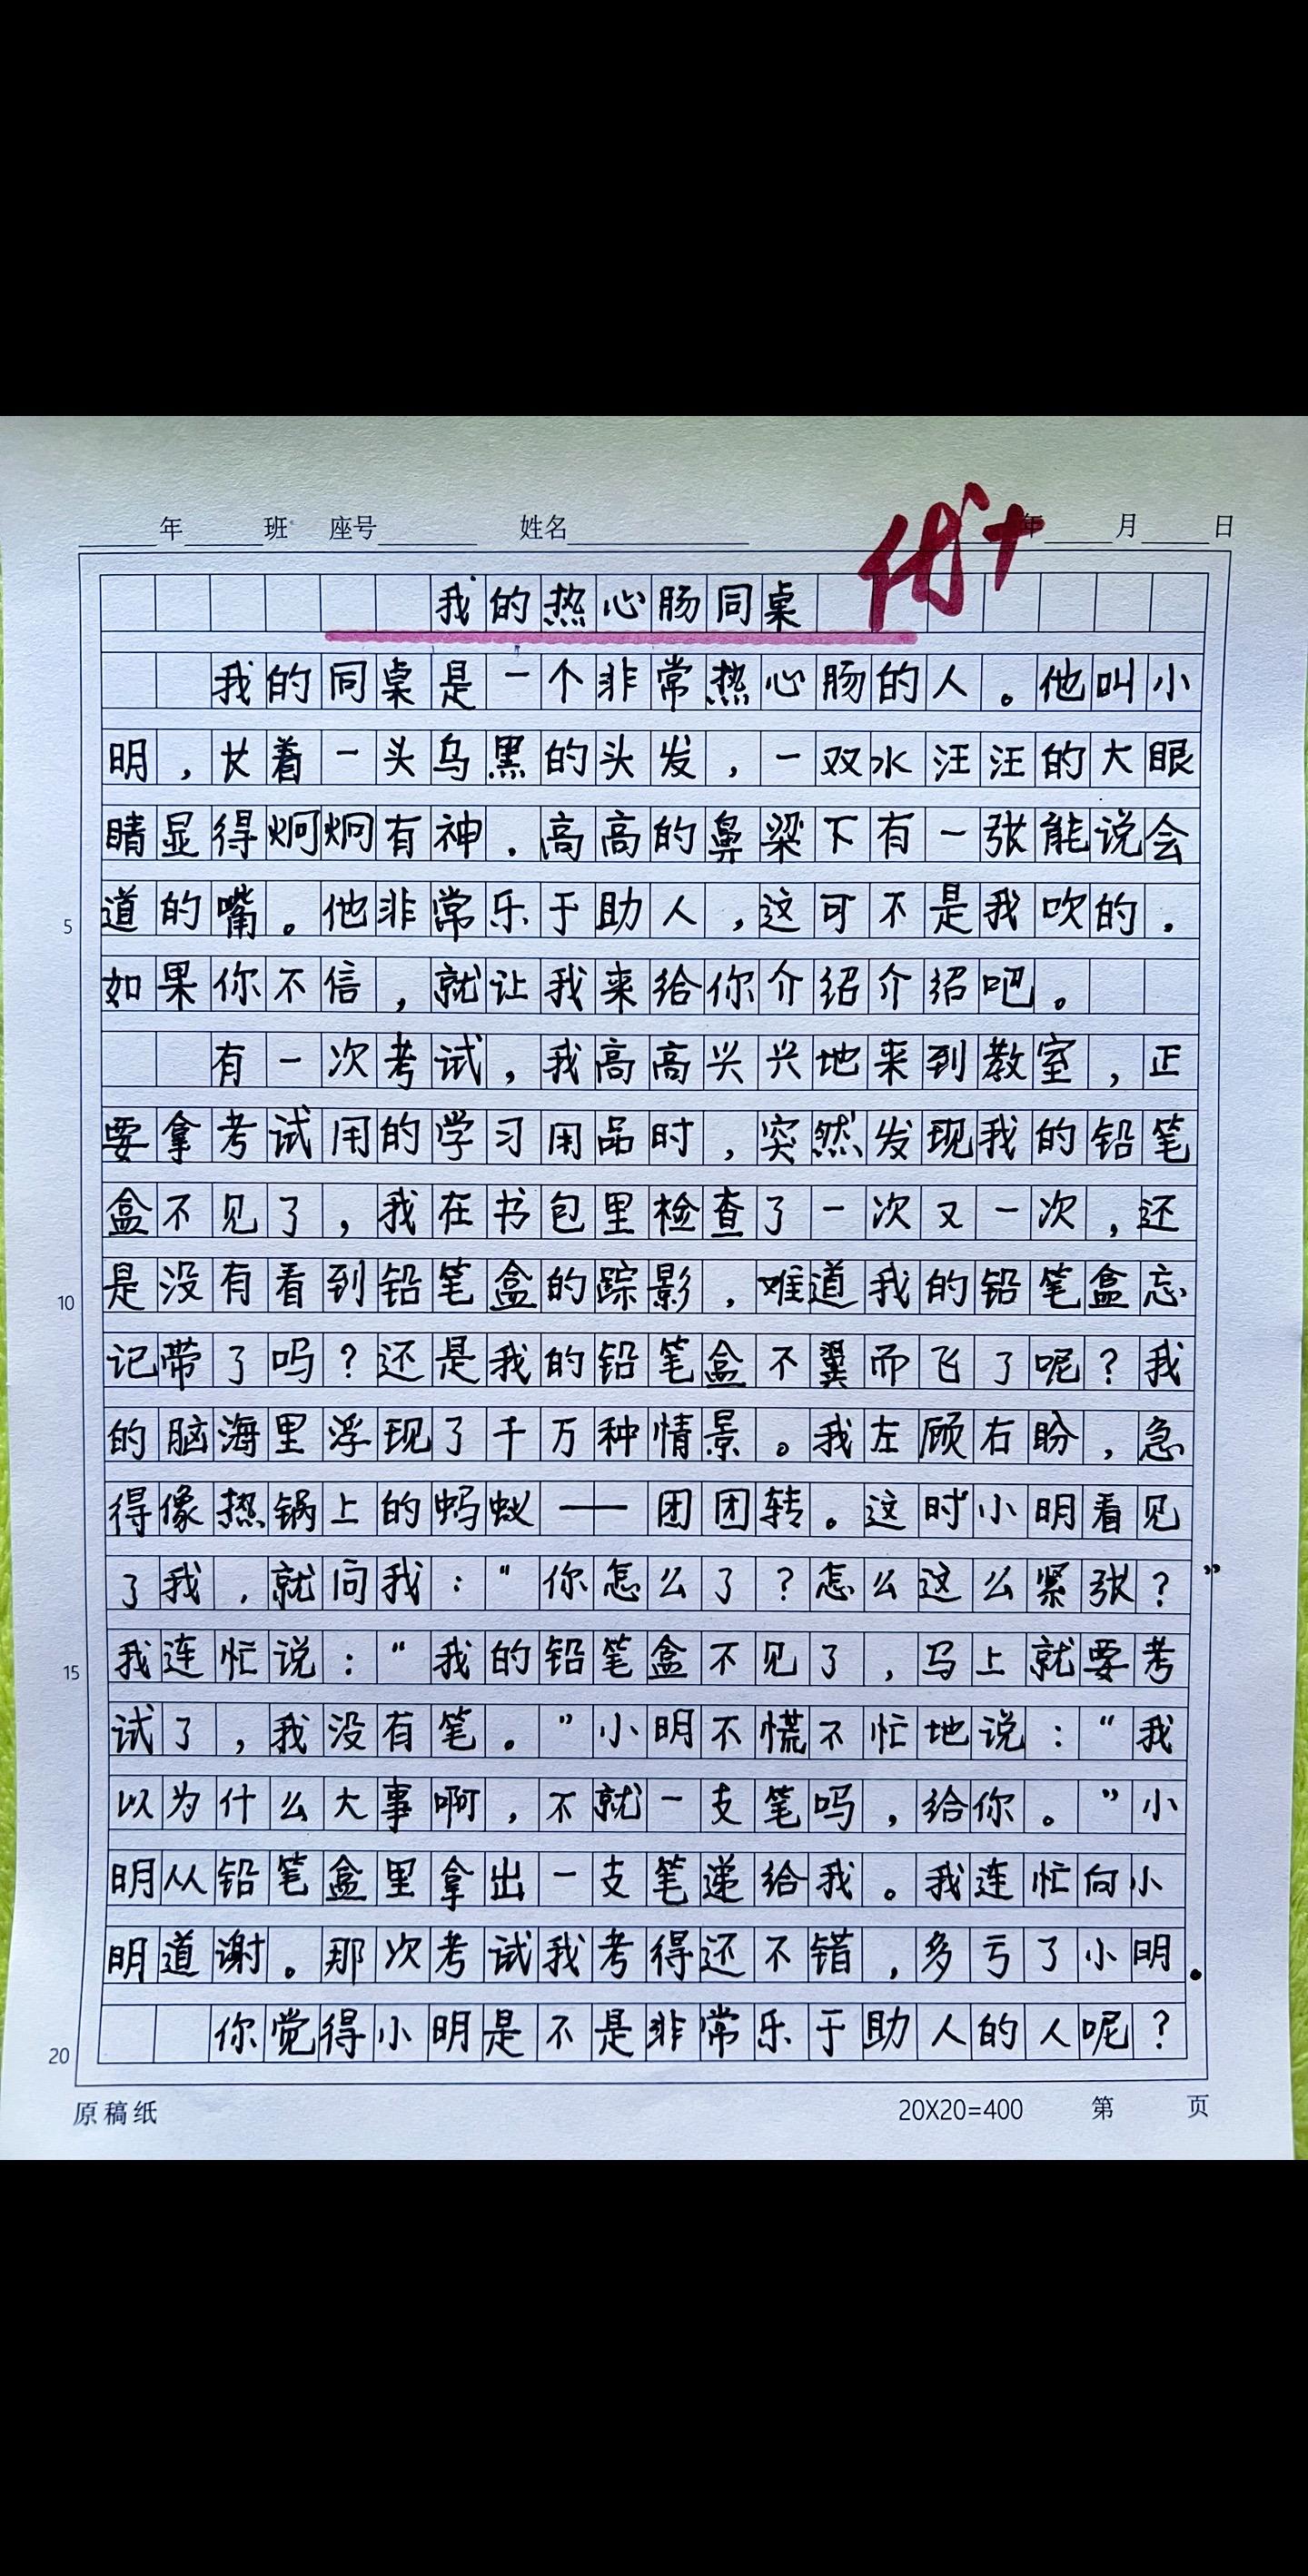 年 班 座号 姓名 年 月 日
优+
我的热心肠同桌
我的同桌是一个非常热心肠的人。他叫小
明，长着一头乌黑的头发，一双水汪汪的大眼
睛显得炯炯有神.高高的鼻梁下有一张能说会
道的嘴。他非常乐于助人，这可不是我吹的.
如果你不信，就让我来给你介绍介绍吧。
有一次考试，我高高兴兴地来到教室，正
要拿考试用的学习用品时，突然发现我的铅笔
盒不见了，我在书包里检查了一次又一次，还
是没有看到铅笔盒的踪影，难道我的铅笔盒忘
记带了吗？还是我的铅笔盒不翼而飞了呢？我
的脑海里浮现了千万种情景。我左顾右盼，急
得像热锅上的蚂蚁——团团转。这时小明看见
了我，就问我：“你怎么了？怎么这么紧张？”
我连忙说：“我的铅笔盒不见了，马上就要考
试了，我没有笔。”小明不慌不忙地说：“我
以为什么大事啊，不就一支笔吗，给你。”小
明从铅笔盒里拿出一支笔递给我。我连忙向小
明道谢。那次考试我考得还不错，多亏了小明.
你觉得小明是不是非常乐于助人的人呢？
5
10
15
20
原稿纸 20X20=400 第 页